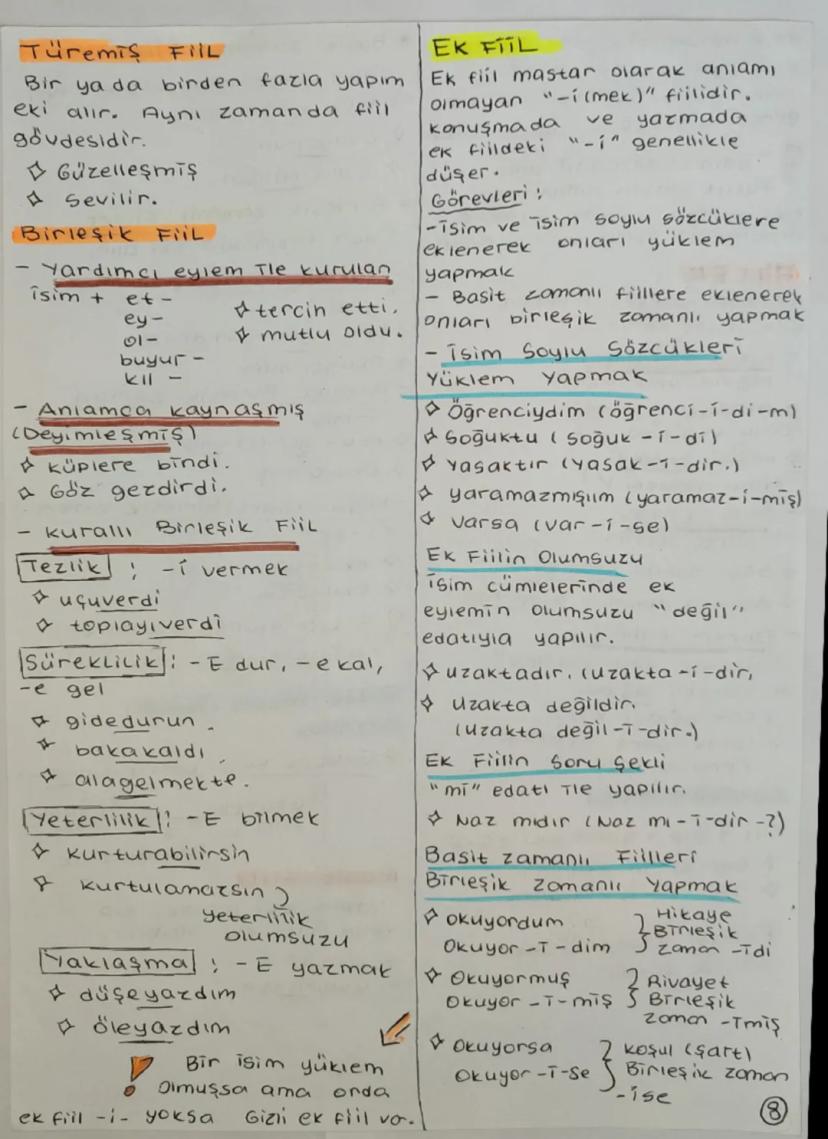 Türemiş Fiil
Bir ya da birden fazla yapım
eki alır. Aynı zamanda fiil
gövdesidir.
Güzelleşmiş
Sevilir.
Birleşik Fiil
- Yardımcı eylem ile kurulan
isim + et -
ey -
ol -
buyur -
kıl -
tercih etti.
mutlu oldu.
- Anlamca kaynaşmış
(Deyimleşmiş)
küplere bindi.
Göz gezdirdi.
- kurallı Birleşik Fiil
Tezlik : -i vermek
uçuverdi
toplayıverdi
Süreklilik : -E dur, -e kal,
-e gel
gidedurun.
bakakaldı.
alagelmekte.
Yeterlilik : -E bilmek
kurturabilirsin
kurtulamazsın
yeterlilik
olumsuzu
Yaklaşma : -E yazmak
düşeyazdım
öleyazdım
! Bir isim yüklem
olmuşsa ama onda
ek fiil -i- yoksa Gizli ek fiil var.
Ek Fiil
Ek fiil mastar olarak anlamı
olmayan "-i(mek)" fiilidir.
konuşmada ve yazmada
ek fiildeki "-i" genellikle
düşer.
Görevleri :
-isim ve isim soylu sözcüklere
eklenerek onları yüklem
yapmak
- Basit zamanlı fiillere eklenerek
onları birleşik zamanlı yapmak
- İsim Soylu Sözcükleri
Yüklem Yapmak
Öğrenciydim (öğrenci-i-di-m)
Soğuktu (soğuk -i-di)
Yasaktır (Yasak-i-dir.)
yaramazmışıım (yaramaz-i-miş)
varsa (var-i-se)
Ek Fiilin Olumsuzu
isim cümlelerinde ek
eylemin olumsuzu "değil"
edatıyla yapılır.
uzaktadır. (uzakta-i-dir,
uzakta değildir.
(uzakta değil-i-dir.)
Ek Fiilin Soru Şekli
"mi" edatı ile yapılır.
Naz mıdır (Naz mı-i-dir-?)
Basit zamanlı Fiilleri
Birleşik zamanlı Yapmak
Okuyordum
Okuyor -i- dim
Hikaye
Birleşik
zaman -idi
Okuyormuş
Okuyor -i-miş
Rivayet
Birleşik
zaman -imiş
Okuyorsa
Okuyor -i-se
koşul (şart)
Birleşik zaman
-ise
8